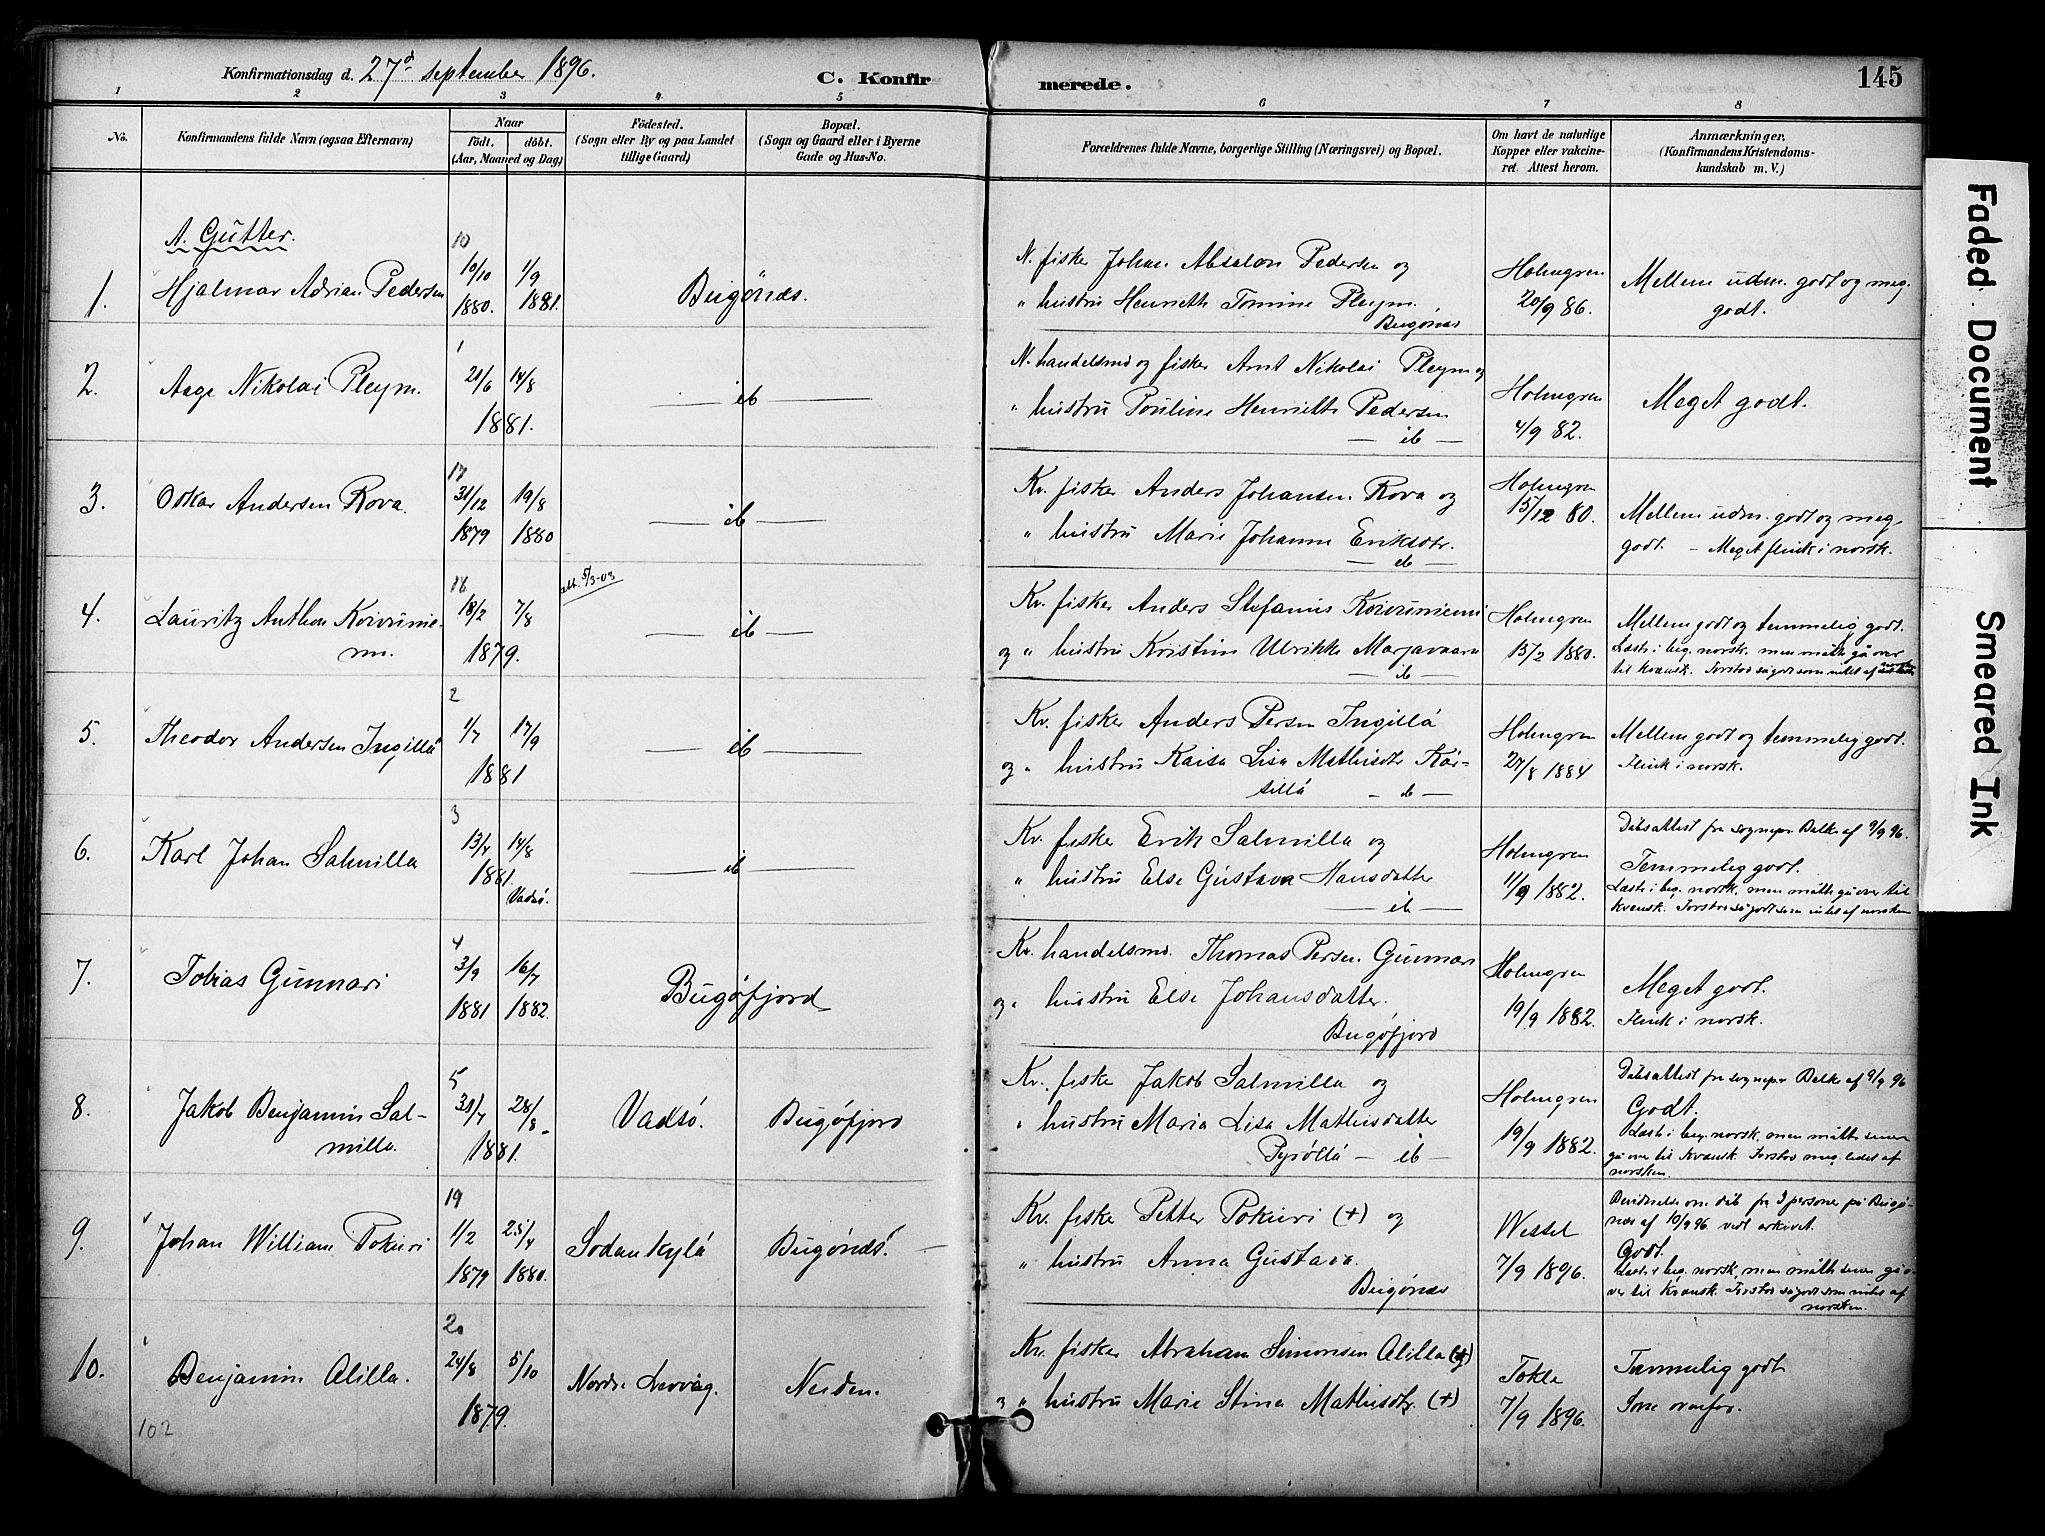 Konfirmationsdag d. 27d september 1896.
C. Konfir
merede.
145
1 2 3 4 5 6 7 8
No.
Konfirmandens fulde Navn (ogsaa Efternavn)
Naar
födt. döbt.
(Aar, Maaned og Dag)
Födested.
(Sogn eller By og paa Landet
tillige Gaard)
Bopæl.
(Sogn og Gaard eller i Byerne
Gade og Hus-No.
Forældrenes fulde Navne, borgerlige Stilling (Næringsvei) og Bopæl.
Om havt de naturlige
Kopper eller vakcine-
ret. Attest herom.
Anmærkninger.
(Konfirmandens Kristendoms-
kundskab m. V.)
A. Gutter.
1.
Hjalmar Adrian Pedersen
10
10/10 1880.
1/9 1881.
Bugönæs.
N. fisker Johan Absalon Pedersen og
" hustru Henriette Tomine Pleym.
Bugönæs
Holmgren
20/9 86.
Mellem udm. godt og meg.
godt.
2.
Aage Nikolai Pleym.
1
21/6 14/8
1881.
— ib —
N. handelsmd og fisker Arnt Nikolai Pleym og
" hustru Pouline Henriette Pedersen
— ib —
Holmgren
4/9 82.
Meget godt.
3.
Oskar Andersen Rova.
17
31/12 1879
19/8 1880
— ib —
Kv. fisker Anders Johansen Rova og
" hustru Marie Johanne Eriksdtr.
— ib —
Holmgren
15/12 80.
Mellem udm. godt og meg.
godt. - Meget flink i norsk.
4.
Lauritz Anthon Koivunie-
mi.
18
18/2 7/8
1879.
att. 5/3-03
— ib —
Kv. fisker Anders Stefanus Koivuniemi
og " hustru Kristine Ulrikke Marjavaara
— ib —
Holmgren
15/2 1880.
Mellem godt og temmelig godt.
Læste i beg. norsk, men måtte gå over
til kvænsk. Forstod så godt som intet af norsken
5.
Theodor Andersen Ingillä
2
1/7 17/9
1881
— ib —
Kv. fisker Anders Persen Ingillä
og " hustru Kaisa Lisa Mathisdtr Kär-
sillä — ib —
Holmgren
27/8 1884
Mellem godt og temmelig godt.
Flink i norsk.
6.
Karl Johan Salmilla
3
13/4 14/8
1881.
Vadsö.
— ib —
Kv. fisker Erik Salmilla og
" hustru Else Gustava Hansdatter
— ib —
Holmgren
11/9 1882.
Dåbsattest fra sognepr Balke af 9/9 96.
Temmelig godt.
Læste i beg. norsk, men måtte gå over til
kvænsk. Forstod så godt som intet af norsken
7.
Tobias Gunnari
4
3/9 1881
16/7 1882.
Bugöfjord
Kv. handelsmd. Thomas Persen Gunnari
og " hustru Else Johansdatter.
Bugöfjord
Holmgren
19/9 1882.
Meget godt.
Flink i norsk.
8.
Jakob Benjamin Sal-
milla.
5
31/7 28/8
1881.
Vadsö.
Bugöfjord
Kv. fisker Jakob Salmilla og
" hustru Maria Lisa Mathisdatter
Pyöllä — ib —
Holmgren
19/9 1882.
Dåbsattest fra sognepr Balke af 9/9 96
Godt.
Læste i beg. norsk, men måtte senere
gå over til kvænsk. Forstod meg. lidet af
norsken.
9.
Johan William Pokuri
19
1/2 1879
25/4 1880.
Sodankylä
Bugönæs.
Kv. fisker Petter Pokuri (+) og
" hustru Anna Gustava.
Bugönæs
Wessel
7/9 1896.
Bevidnelse om dåb fra 3 personer på Bugö-
næs af 10/9 96 vedl. arkivet.
Godt.
Læste i beg. norsk, men måtte senere gå o-
ver til kvænsk. Forstod så godt som intet af
norsken.
10.
Benjamin Alilla.
20
24/8 5/10
1879.
Neiden.
Kv. fisker Abraham Simonsen Alilla (+)
og " hustru Marie Stina Mathisdtr. (+)
Tokle
7/9 1896.
Temmelig godt
Som ovenfor.
102
Faded Document
Smeared Ink